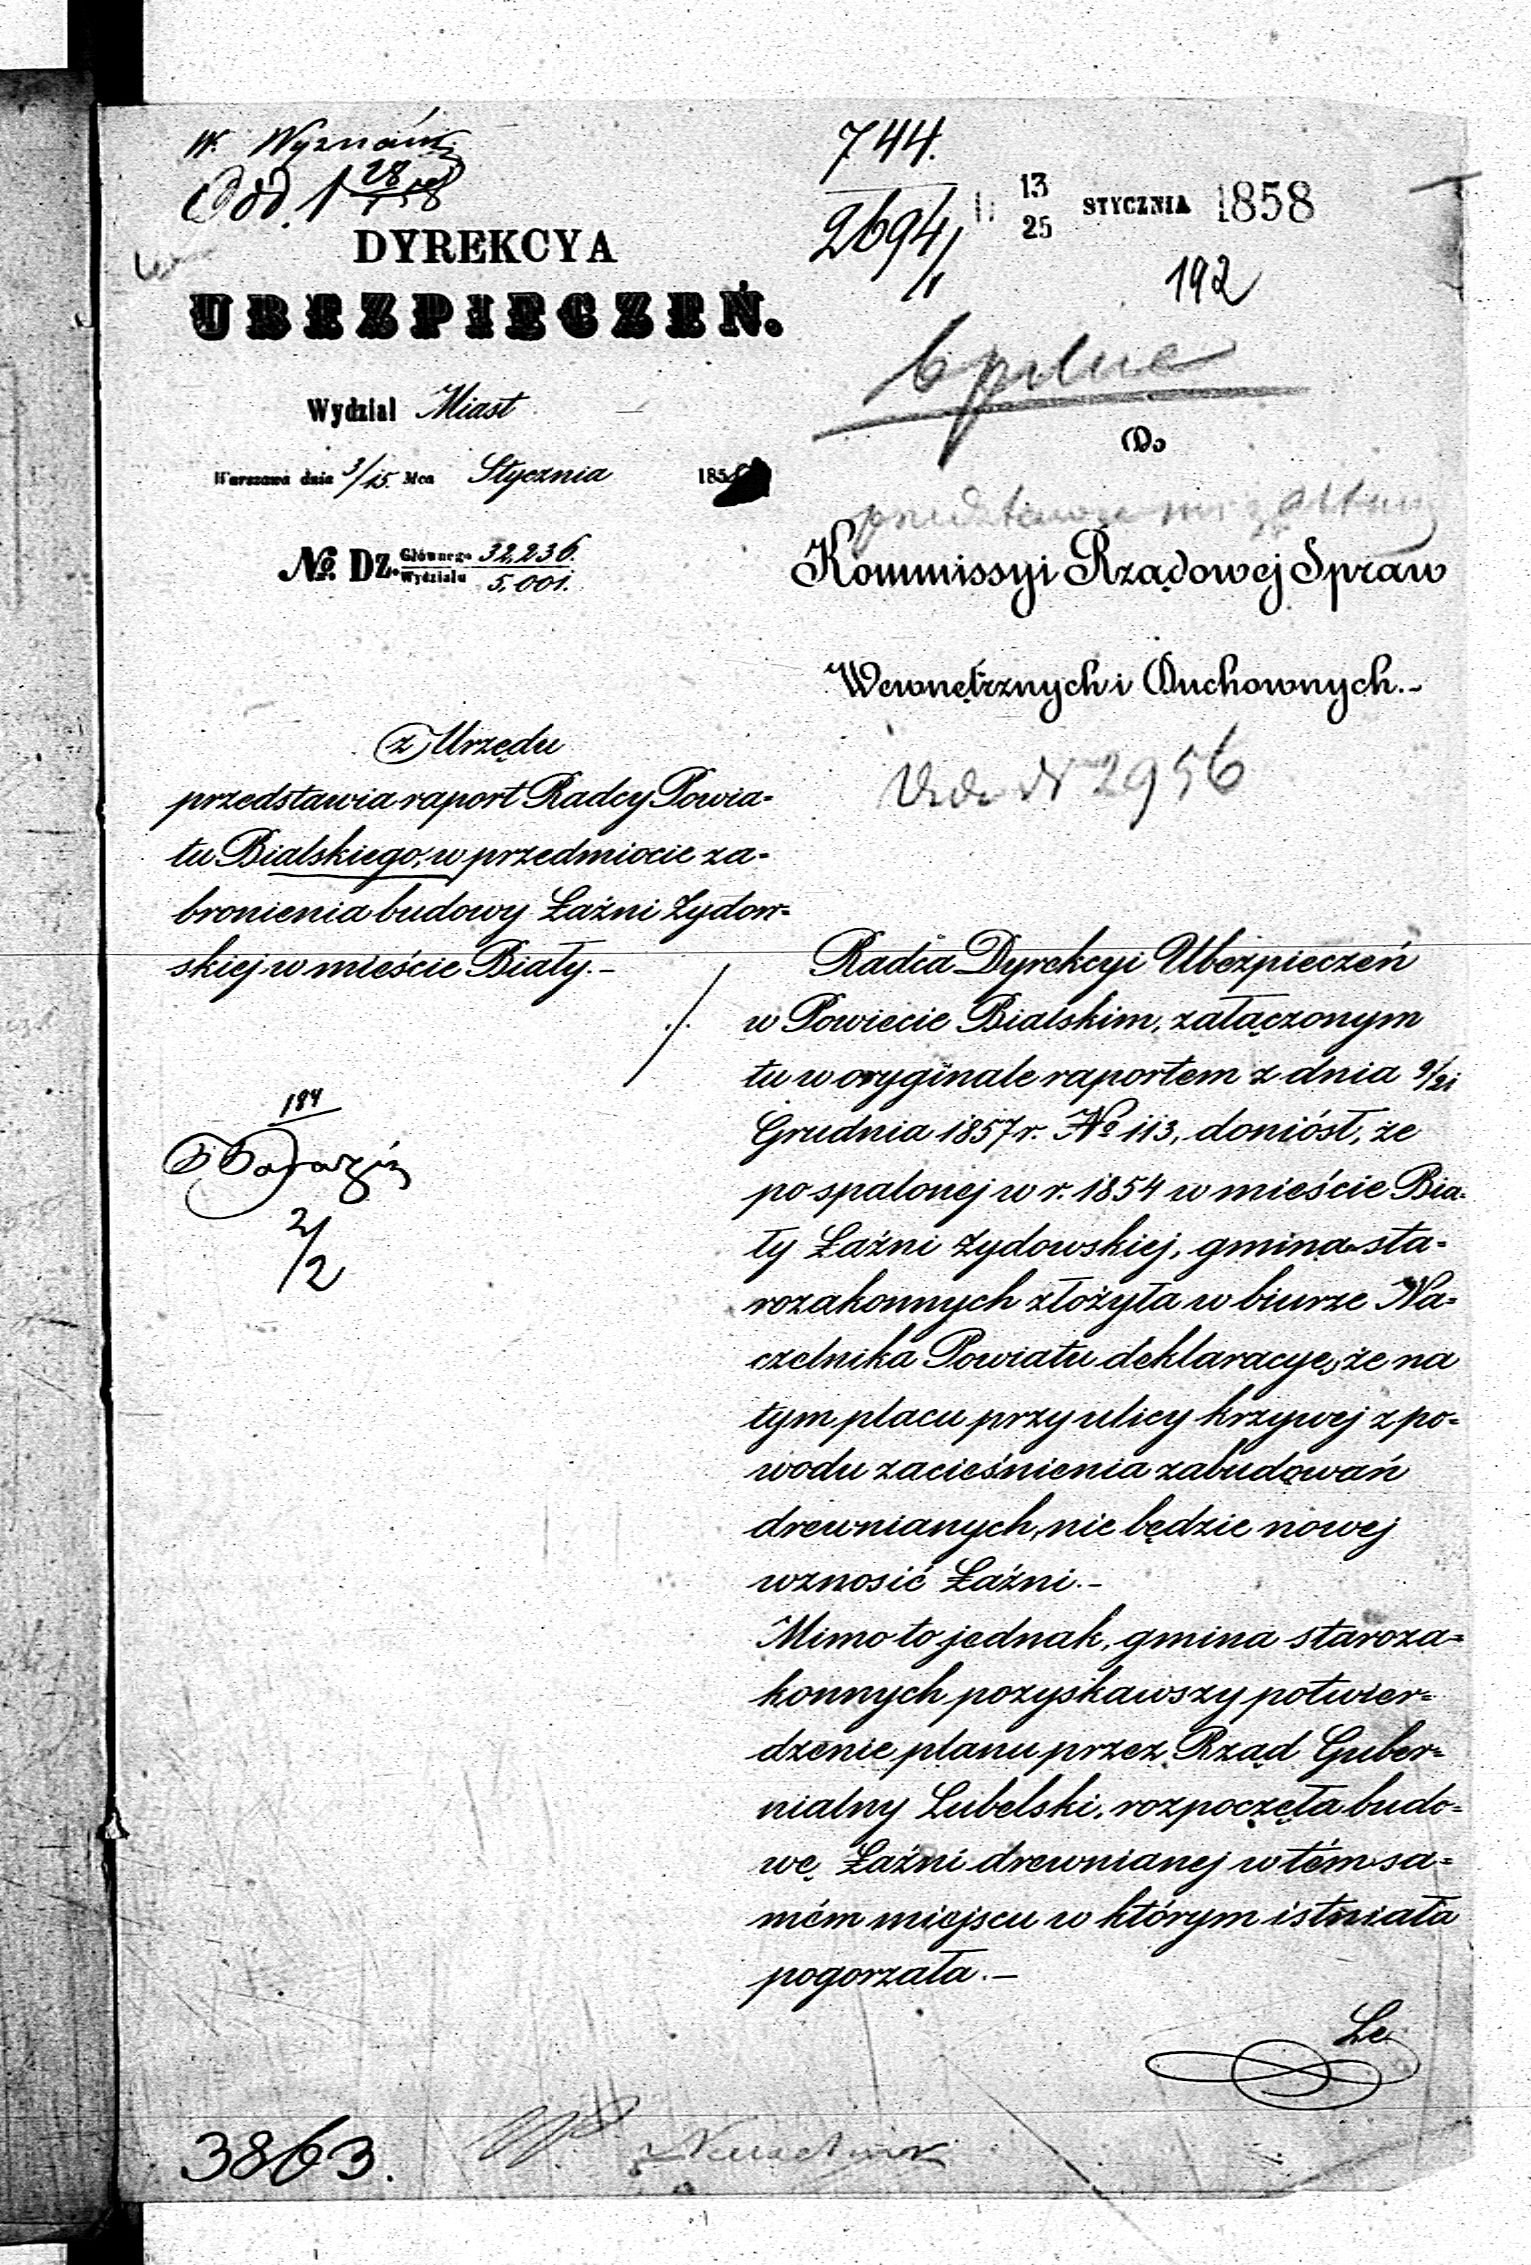 W. Wyznań
Odd. 1 28/1 58
744.
2694/
13/25 STYCZNIA 1858
192
DYREKCYA
UBEZPIECZEŃ.
Wydział Miast
Warszawa dnia 3/15. Mca Stycznia 185
No. Dz. Głównego 32,236.
Wydziału 5,001.
pilne
Do
Kommissyi Rządowej Spraw
Wewnętrznych i Duchownych.-
N 2956
z Urzędu
przedstawia raport Radcy Powia=
tu Bialskiego, w przedmiocie za=
bronienia budowy Łaźni Żydow=
skiej w mieście Biały.-
184
2/2
Radca Dyrekcyi Ubezpieczeń
w Powiecie Bialskim, załączonym
tu w oryginale raportem z dnia 9/21
Grudnia 1857 r. No 113, doniósł, że
po spalonej w r. 1854 w mieście Bia=
ły Łaźni żydowskiej, gmina sta=
rozakonnych złożyła w biurze Na=
czelnika Powiatu deklaracyę, że na
tym placu przy ulicy krzywej z po=
wodu zacieśnienia zabudowań
drewnianych, nie będzie nowej
wznosić Łaźni.-
Mimo to jednak, gmina staroza=
konnych pozyskawszy potwier=
dzenie planu przez Rząd Guber=
nialny Lubelski, rozpoczęła budo=
wę Łaźni drewnianej w tém sa=
mém miejscu w którym istniała
pogorzała.-
Le
3863.